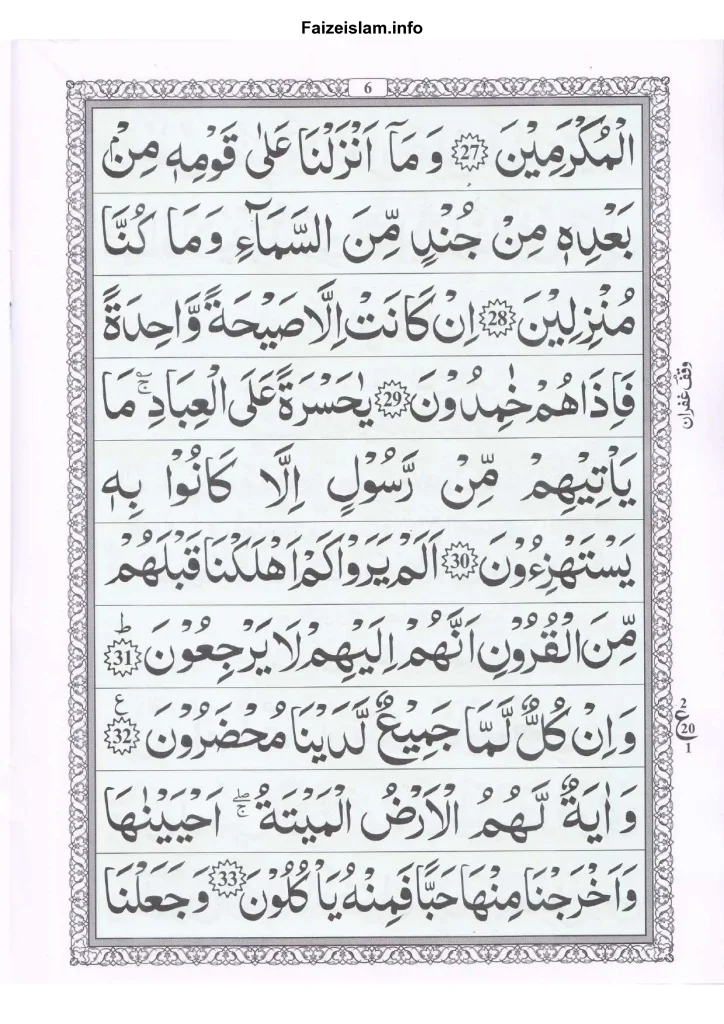 Faizeislam.info
6
الْمُكْرَمِیْنَ 27 وَ مَاۤ اَنْزَلْنَا عَلٰی قَوْمِهٖ مِنْۢ
بَعْدِهٖ مِنْ جُنْدٍ مِّنَ السَّمَآءِ وَ مَا كُنَّا
مُنْزِلِیْنَ 28 اِنْ كَانَتْ اِلَّا صَیْحَةً وَّاحِدَةً
فَاِذَا هُمْ خٰمِدُوْنَ 29 یٰحَسْرَةً عَلَی الْعِبَادِ ۚ مَا
وقف غفران
یَاْتِیْهِمْ مِّنْ رَّسُوْلٍ اِلَّا كَانُوْا بِهٖ
یَسْتَهْزِءُوْنَ 30 اَلَمْ یَرَوْا كَمْ اَهْلَكْنَا قَبْلَهُمْ
مِّنَ الْقُرُوْنِ اَنَّهُمْ اِلَیْهِمْ لَا یَرْجِعُوْنَ 31 ط
وَ اِنْ كُلٌّ لَّمَّا جَمِیْعٌ لَّدَیْنَا مُحْضَرُوْنَ 32 ع
2
ع
20
1
وَ اٰیَةٌ لَّهُمُ الْاَرْضُ الْمَیْتَةُ ۖۚ اَحْیَیْنٰهَا
وَ اَخْرَجْنَا مِنْهَا حَبًّا فَمِنْهُ یَاْكُلُوْنَ 33 وَ جَعَلْنَا